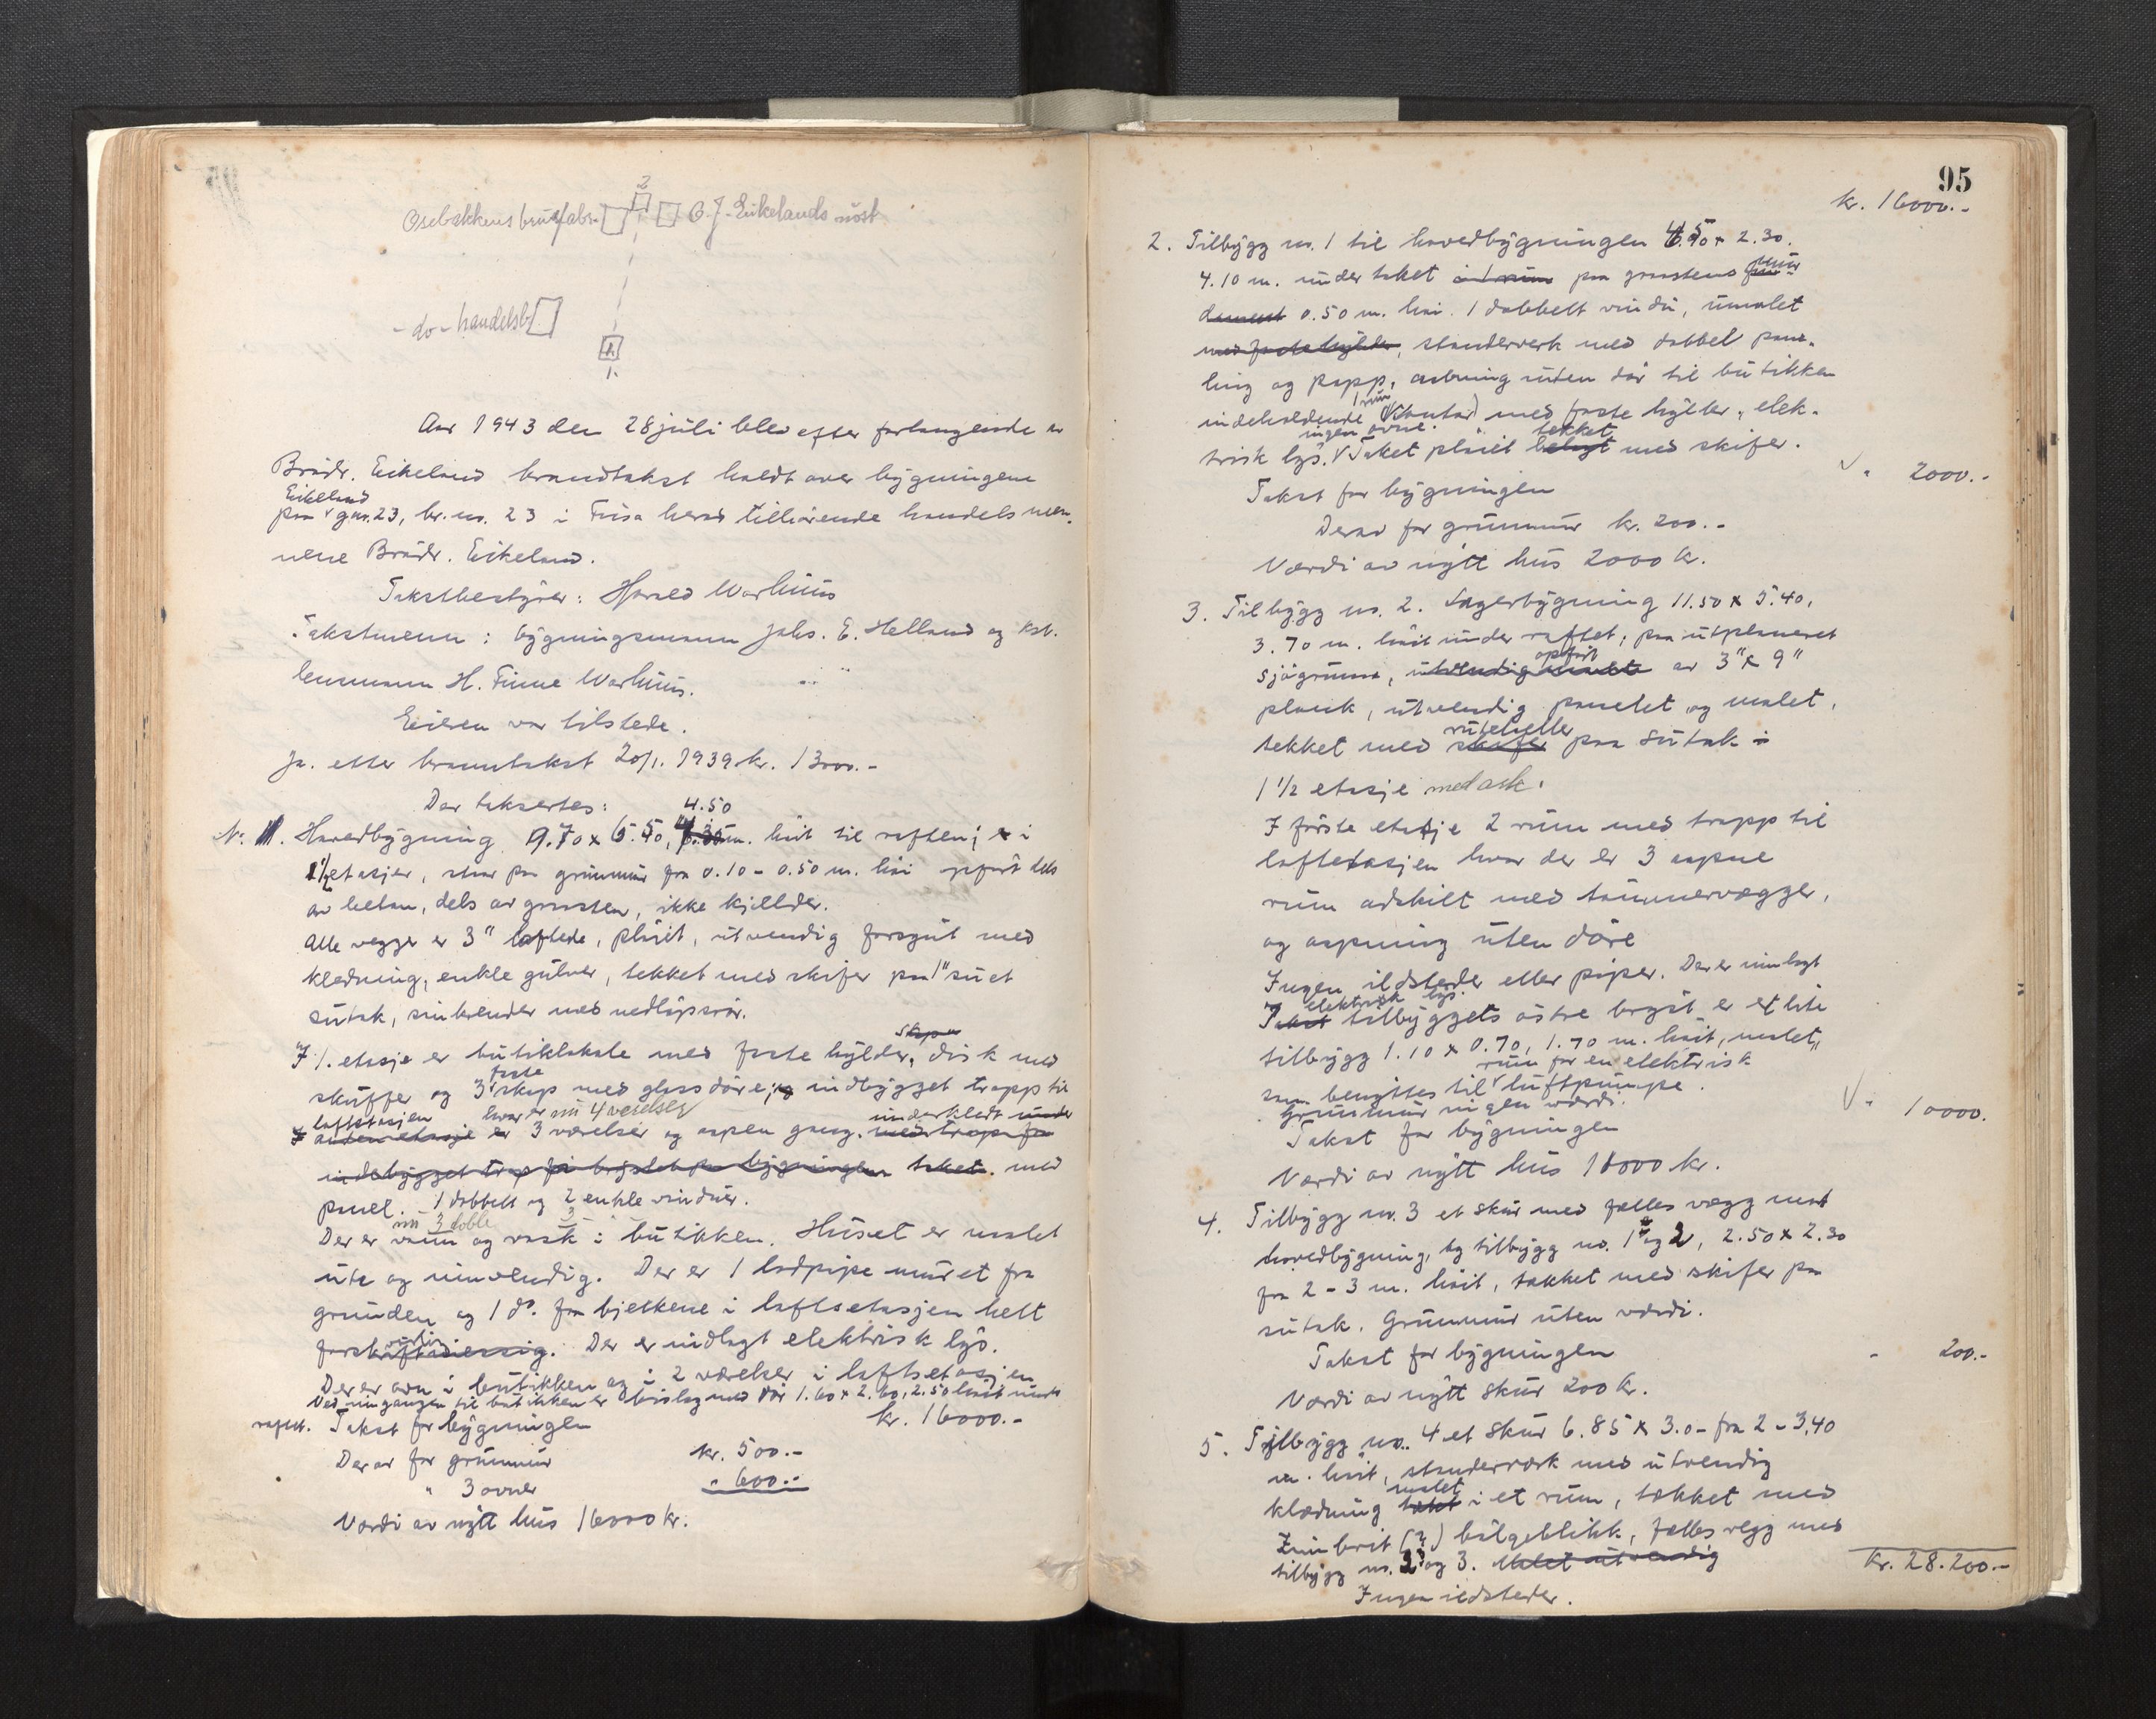 2
Osebakkens brusfabr. O. J. Eikelands nöst
- do - handelsb.
1.
Aar 1943 den 28 juli blev efter forlangende av
Brödr. Eikeland brandtakst holdt over bygningene
Eikeland
paa gnr. 23, br. nr. 23 i Fusa herad tilhörende handelsmen-
nene Brödr. Eikeland.
Takstbestyrer: Harald Warhuus
Takstmenn: bygningsmann Johs. E. Helland og kst.
lensmann H. Finne Warhuus.
Eieren var tilstede.
Ja. etter branntakst 20/1. 1939 kr. 13000.-
Der taksertes:
4.50
No. 1. Hovedbygning 9.70 x 6.50, m. höit til raften; i
1 1/2 etasjer, staar paa grunnmur fra 0.10 - 0.50 m. höi opfört dels
av beton, dels av graasten, ikke kjellder.
Alle vegger er 3" laftede, pløiet, utvendig forsynt med
kledning, enkle gulver, tekket med skifer paa 1" suet
sutak, sinkrender med nedlöpsrör.
skaper
I 1. etasje er butiklokale med faste hylder, disk med
faste
skuffer og 3 skap med glassdöre; indbygget trapp til
loftetasjen hvor er nu 4 verelser underkledt under
I anden etasje er 3 værelser og aapen gang. med trapp fra
indebygget trapp fra bryslet paa bygningen taket. med
panel. 1 dobbelt og 2 enkle vinduer.
nu 3 doble 3
Der er vann og vask i butikken. Huset er malet
ute og innvendig. Der er 1 lodpipe muret fra
grunden og 1 do. fra bjelkene i loftsetasjen helt
forskriftsmessig. Der er indlagt elektrisk lys.
Der er ovn i butikken og i 2 værelser i loftsetasjen
Ved inngangen til butikken er bislag med dör 1.60 x 2.60, 2.50 höit under
raftet. Takst for bygningen kr. 16000.-
Derav for grunnmur kr. 500.-
" 3 ovner " 600.-
Værdi av nytt hus 16000 kr.
95
kr. 16000.-
2. Tilbygg nr. 1 til hovedbygningen 4.50 x 2.30.
4.10 m. under taket i 1 rum paa graastens mur
dament 0.50 m. höi. 1 dobbelt vindu, umalet
med faste hylder, standerverk med dobbel pane-
ling og papp, aabning uten dör til butikken
1 rum
indeholdende (kontor) med faste hylder, elek-
ingen ovne. tekket
trisk lys. Taket pløiet belagt med skifer.
Takst for bygningen " 2000.-
Derav for grunnmur kr. 200.-
Værdi av nytt hus 2000 kr.
3. Tilbygg nr. 2. Lagerbygning 11.50 x 5.40,
3.70 m. höit under raftet, paa utplaneret
opfört
sjögrunn, utvendig malte av 3" x 9"
plank, utvendig panelet og malet,
ruteheller
tekket med skifer paa sutak i
1 1/2 etasje med ark.
I förste etasje 2 rum med trapp til
loftetasjen hvor der er 3 aapne
rum adskilt med tömmervægger,
og aapning uten döre
Ingen ildsteder eller piper. Der er innlagt
elektrisk lys.
Takst tilbyggets östre bryst er et lite
tilbygg 1.10 x 0.70, 1.70 m. höit, malet,
rum for en elektrisk
som benyttes til luftpumpe.
Grunnmur ingen værdi.
Takst for bygningen " 10000.
Værdi av nytt hus 10000 kr.
4. Tilbygg nr. 3 et skur med felles vægg med
hovedbygning, og tilbygg nr. 1 og 2, 2.50 x 2.30
fra 2 - 3 m. höit, takket med skifer paa
sutak. Grunnmur uten værdi.
Takst for bygningen - 200.-
Værdi av nytt skur 200 kr.
5. Tilbygg nr. 4 et skur 6.85 x 3.0 - fra 2 - 3,40
m. höit, standerværk med utvendig
malet
klædning i et rum, tekket med
(?) bölgeblikk, felles vegg med
tilbygg nr. 2 og 3. Malet utvendig
kr. 28.200.-
Ingen ildsteder.